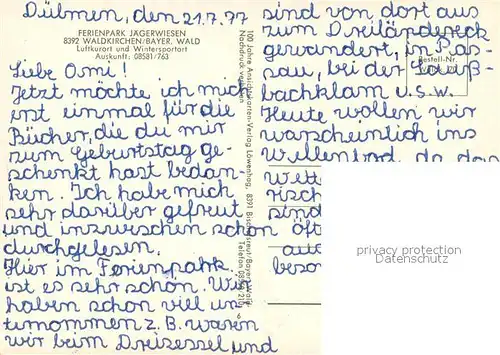 Dülmen, den 21.7.77
FERIENPARK JÄGERWIESEN
8392 WALDKIRCHEN/BAYER. WALD
Luftkurort und Wintersportort
Auskunft: 08581/763
Liebe Omi!
Jetzt möchte ich mich
erst einmal für die
Bücher, die du mir
zum Geburtstag ge-
schenkt hast bedan-
ken. Ich habe mich
sehr darüber gefreut
und inzwischen schon
durchgelesen.
Hier im Ferienpark
ist es sehr schön. Wir
haben schon viel un
ternommen z.B. waren
wir beim Dreisessel und
100 Jahre Ansichtskarten-Verlag Löwenhag, 8391
Nachdruck verboten
Telefon
6
sind von dort aus
zum Dreiländereck
gewandert, in Pas-
sau, bei der
bachklam u.s.w.
Heute wollen wir
warscheinlich ins
Wellenbad, da das
Wett
risch
sind
öft
auc
beso
Bestell-Nr.
privacy protection
Datenschutz